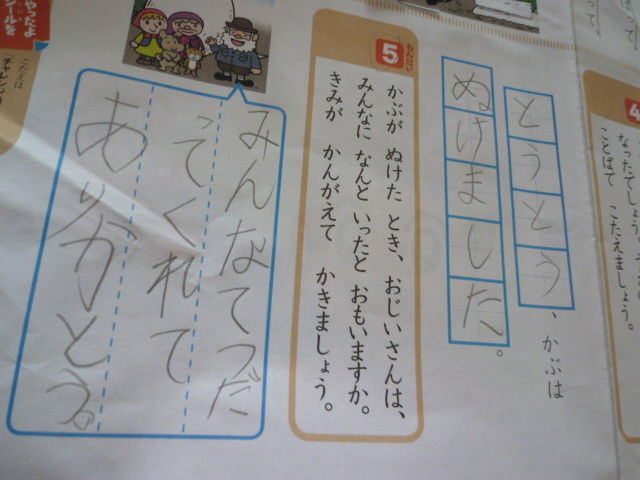 なったでしょう。
ことばで こたえましょう。
4
とうとう、かぶは
ぬけました。
もんだい
5
かぶが ぬけた とき、おじいさんは、
みんなに なんと いったと おもいますか。
きみが かんがえて かきましょう。
みんなてつだ
ってくれて
ありがとう。
やったよ
シールを